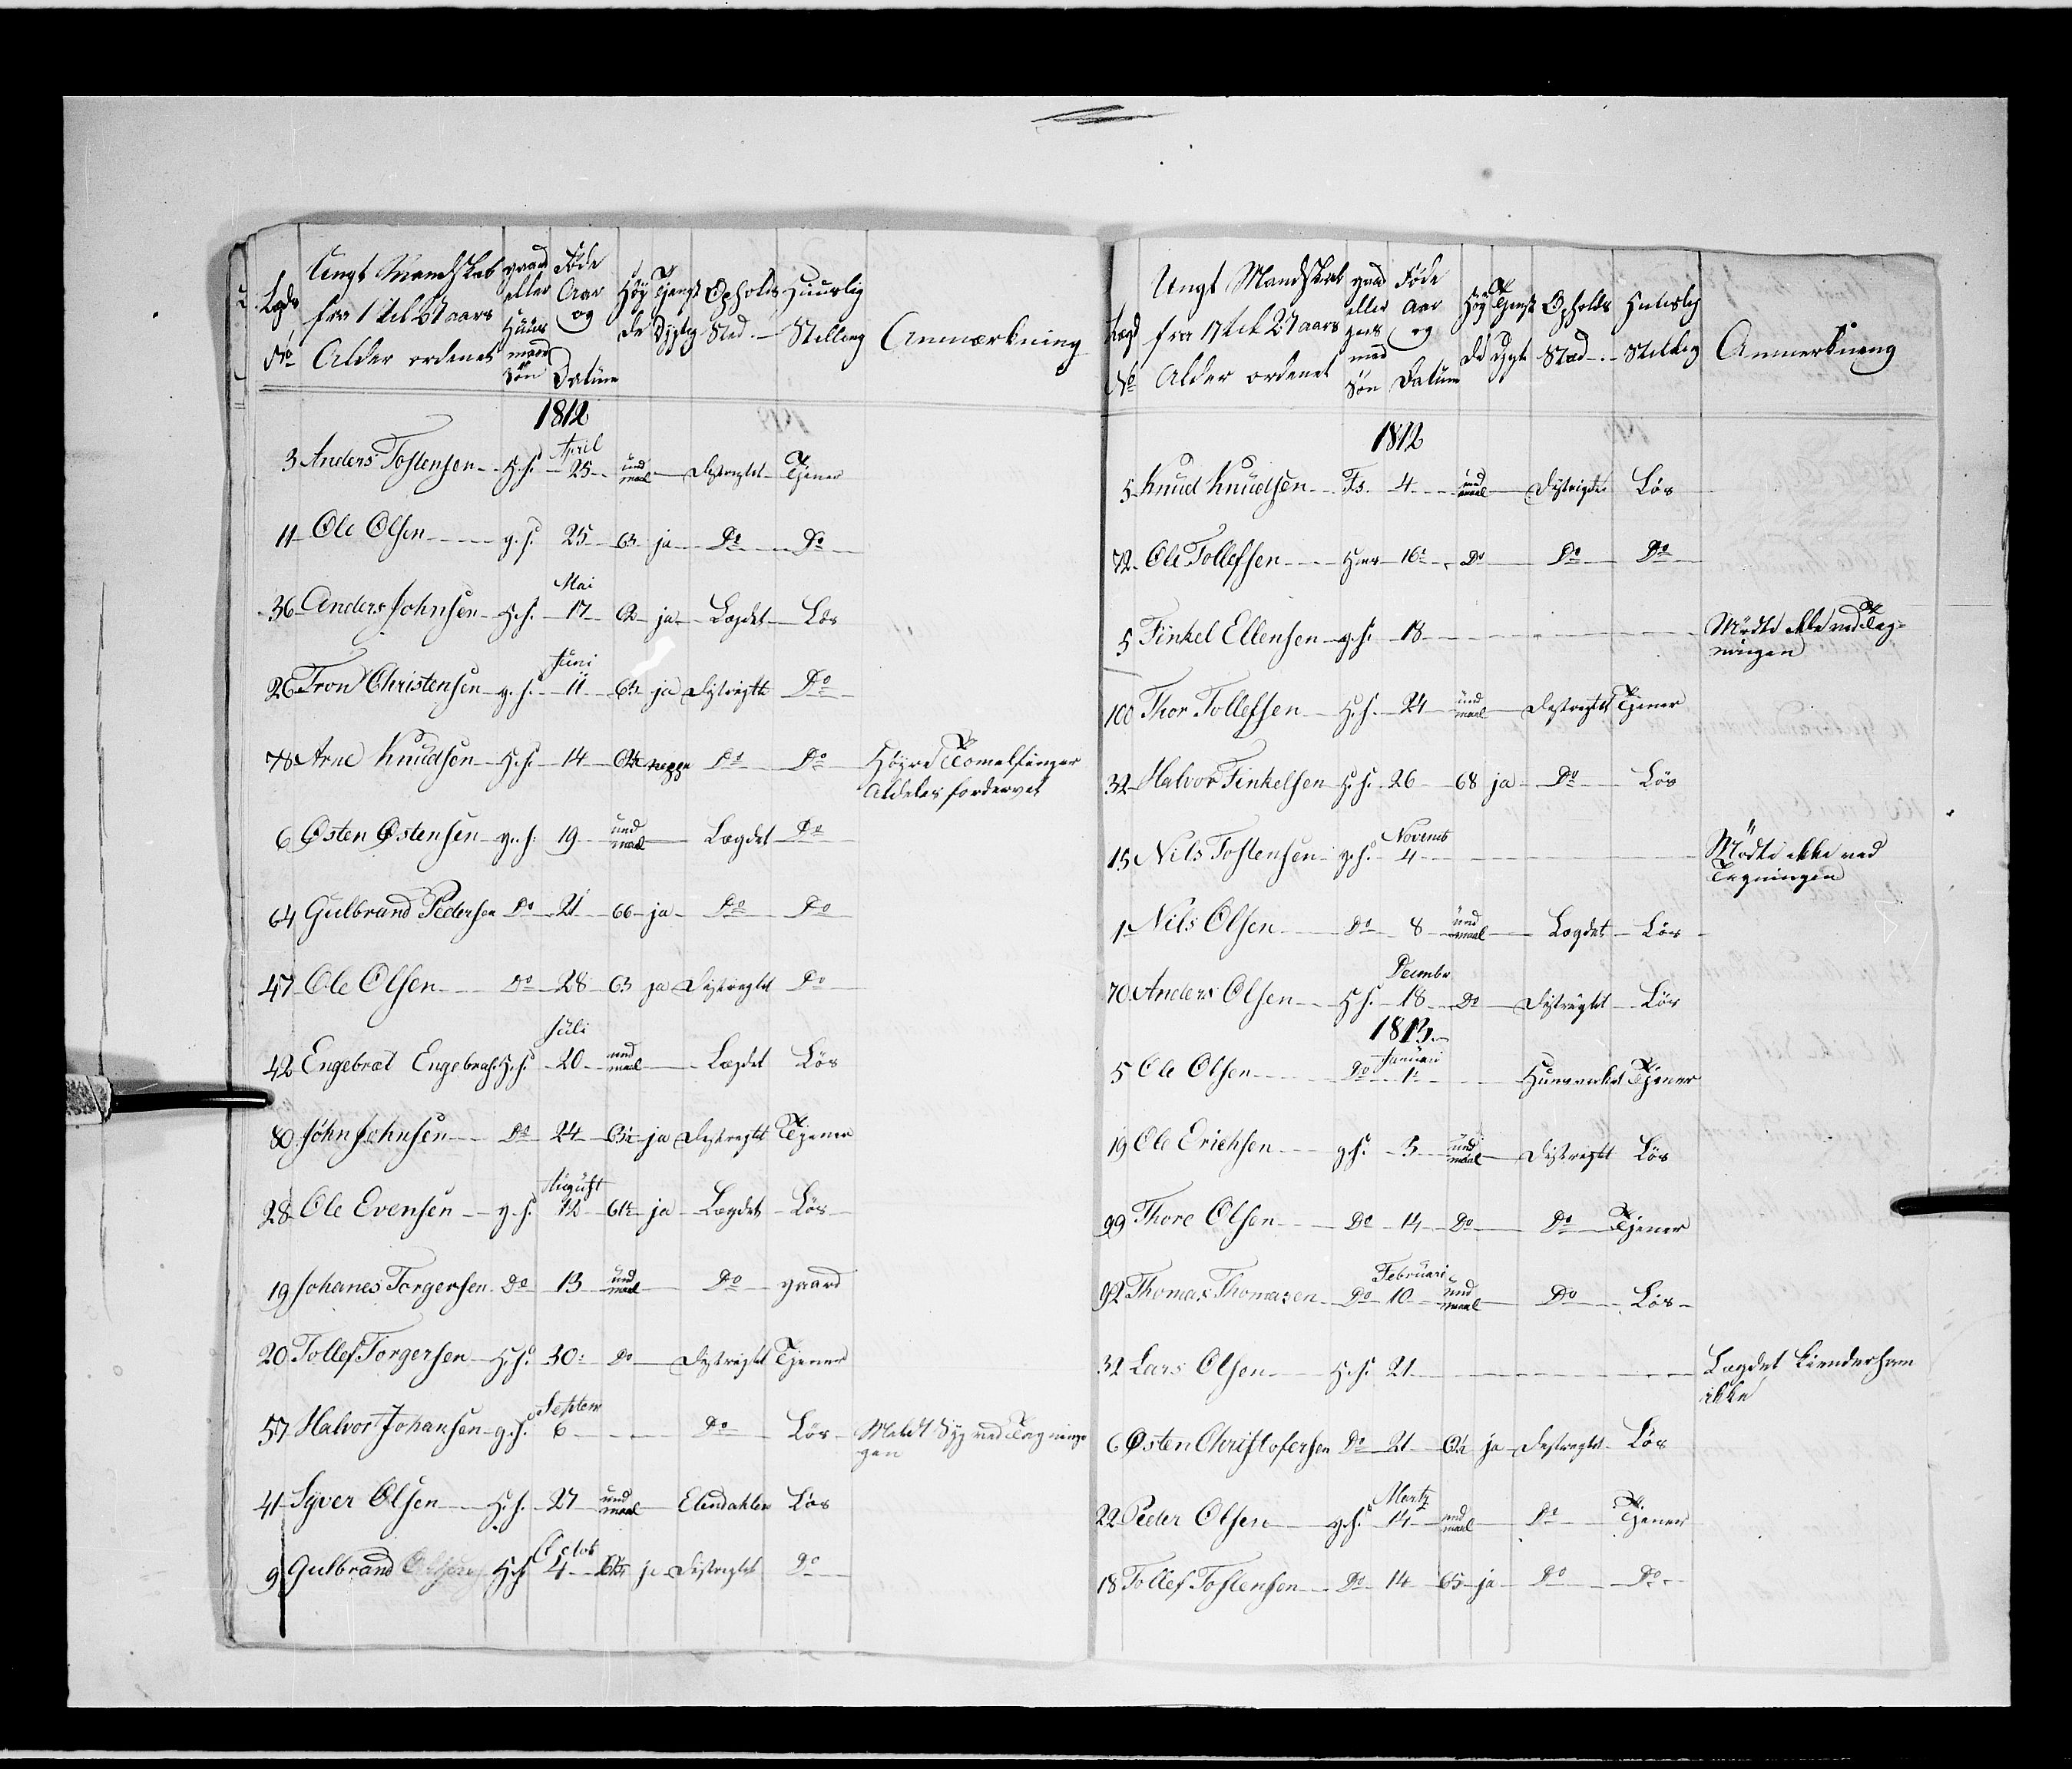 Lægds No | Ungt Mandskab fra 17 til 21 aars Alder ordenet | gaard eller Huus mand Søn | Føde Aar og Datum | Høyde | Tjenst Dygtig | Opholds Sted | Huuslig Stilling | Anmærkning
1812
April
3 Anders Tostensen H.s. 25 und maal Distrigtet Tjener
11 Ole Olsen g.s. 25 63 ja Do Do
Mai
36 Anders Johnsen H.s. 17 ja Lægdet Løs
Juni
26 Tron Christensen g.s. 11 ja Distrigtet Do
78 Arne Knudsen H.s. 14 neppe Do Do Høyre Tomelfinger
Aldeles fordervet
6 Østen Østensen g.s. 19 und maal Lægdet Do
64 Gulbrand Pedersen Do 21 66 ja Do Do
47 Ole Olsen Do 28 63 ja Distrigtet Do
Juli
42 Engebret Engebrets. H.s. 20 und maal Lægdet Løs
80 John Johnsen Do 24 ja Distrigtet Tjener
August
28 Ole Evensen g.s. 12 ja Lægdet Løs
19 Johanes Torgersen Do 13 und maal Do gaard
20 Tollef Torgersen H.s. 30 Do Distrigtet Tjener
Septem
57 Halvor Johansen g.s. 6 Do Løs Meldt Syg ved Tegnin
gen
41 Syver Olsen H.s. 27 und maal Løs
Octob
9 Gulbrand Olsen H.s. 4 ja Distrigtet Do
Lægd No | Ungt Mandskab fra 17 til 21 aars Alder ordenet | gaard eller Huus mand Søn | Føde Aar og Datum | Høyde | Tjenst Dygtig | Opholds Sted | Huuslig Stilling | Anmerkning
1812
5 Knud Knudsen F.s. 4 und maal Distrigtet Løs
72 Ole Tollefsen 16 Do Do Do
5 Finkel Ellensen g.s. 18 Mødte ikke ved Teg-
ningen
100 Thor Tollefsen H.s. 24 und maal Distrigtet Tjener
32 Halvor Finkelsen H.s. 26 68 ja Do Løs
Novemb
15 Nils Tostensen g.s. 4 Mødte ikke ved
Tegningen
1 Nils Olsen Do 8 und maal Lægdet Løs
Decembr
70 Anders Olsen H.s. 18 Do Distrigtet Løs
1813
Januari
5 Ole Olsen Do 1 Tjener
19 Ole Erichsen g.s. 3 und maal Distrigtet Løs
99 Thore Olsen Do 14 Do Do Tjener
Februari
92 Thomas Thomasen Do 10 und maal Do Løs
32 Lars Olsen H.s. 21 Lægdet kiender ham
ikke
6 Østen Christofersen Do 21 ja Distrigtet Løs
Mertz
22 Peder Olsen g.s. 14 und maal Do Tjener
18 Tollef Tostensen Do 14 65 ja Do Do